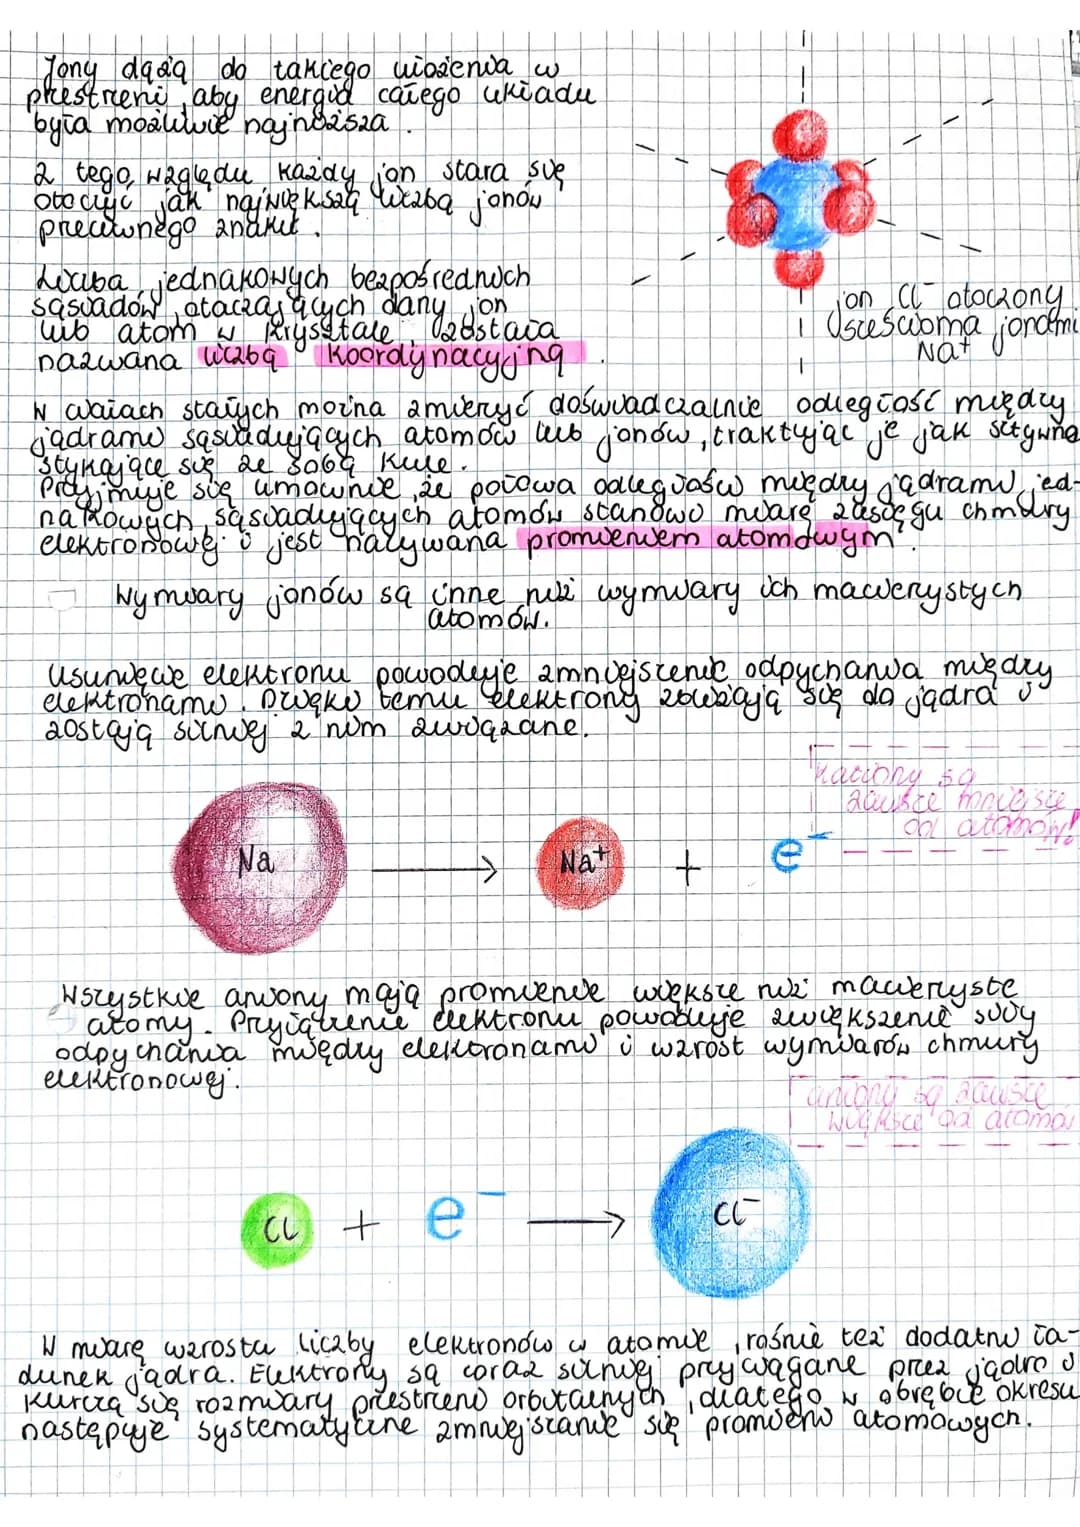 Jony dążą do takiego ułożenia w
przestrzeni, aby energia całego układu
była możliwie najniższa.
Z tego względu każdy jon stara się
otoczyć jak największą liczbą jonów
przeciwnego znaku.
Liczba jednakowych bezpośrednich
sąsiadów otaczających dany jon
lub atom w krysztale została
nazwana liczbą koordynacyjną.
jon Cl⁻ otoczony
sześcioma jonami
Na⁺
W ciałach stałych można zmierzyć doświadczalnie odległość między
jądrami sąsiadujących atomów lub jonów, traktując je jak sztywne
stykające się ze sobą kule.
Przyjmuje się umownie, że połowa odległości między jądrami jed-
nakowych, sąsiadujących atomów stanowi miarę zasięgu chmury
elektronowej i jest nazywana promieniem atomowym.
Wymiary jonów są inne niż wymiary ich macierzystych
atomów.
Usunięcie elektronu powoduje zmniejszenie odpychania między
elektronami. Dzięki temu elektrony zbliżają się do jądra i
zostają silniej z nim związane.
kationy są
zawsze mniejsze
od atomów!
Na → Na⁺ + e⁻
Wszystkie aniony mają promienie większe niż macierzyste
atomy. Przyłączenie elektronu powoduje zwiększenie siły
odpychania między elektronami i wzrost wymiarów chmury
elektronowej.
aniony są zawsze
większe od atomów
Cl + e⁻ → Cl⁻
W miarę wzrostu liczby elektronów w atomie, rośnie też dodatni ła-
dunek jądra. Elektrony są coraz silniej przyciągane przez jądro i
kurczą się rozmiary przestrzeni orbitalnych, dlatego w obrębie okresu
następuje systematyczne zmniejszanie się promieni atomowych.